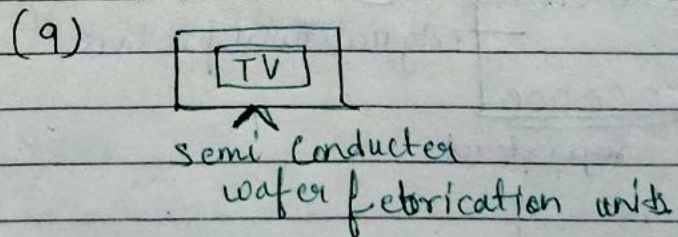 (9)
TV
semi Conducter
wafer febrication units